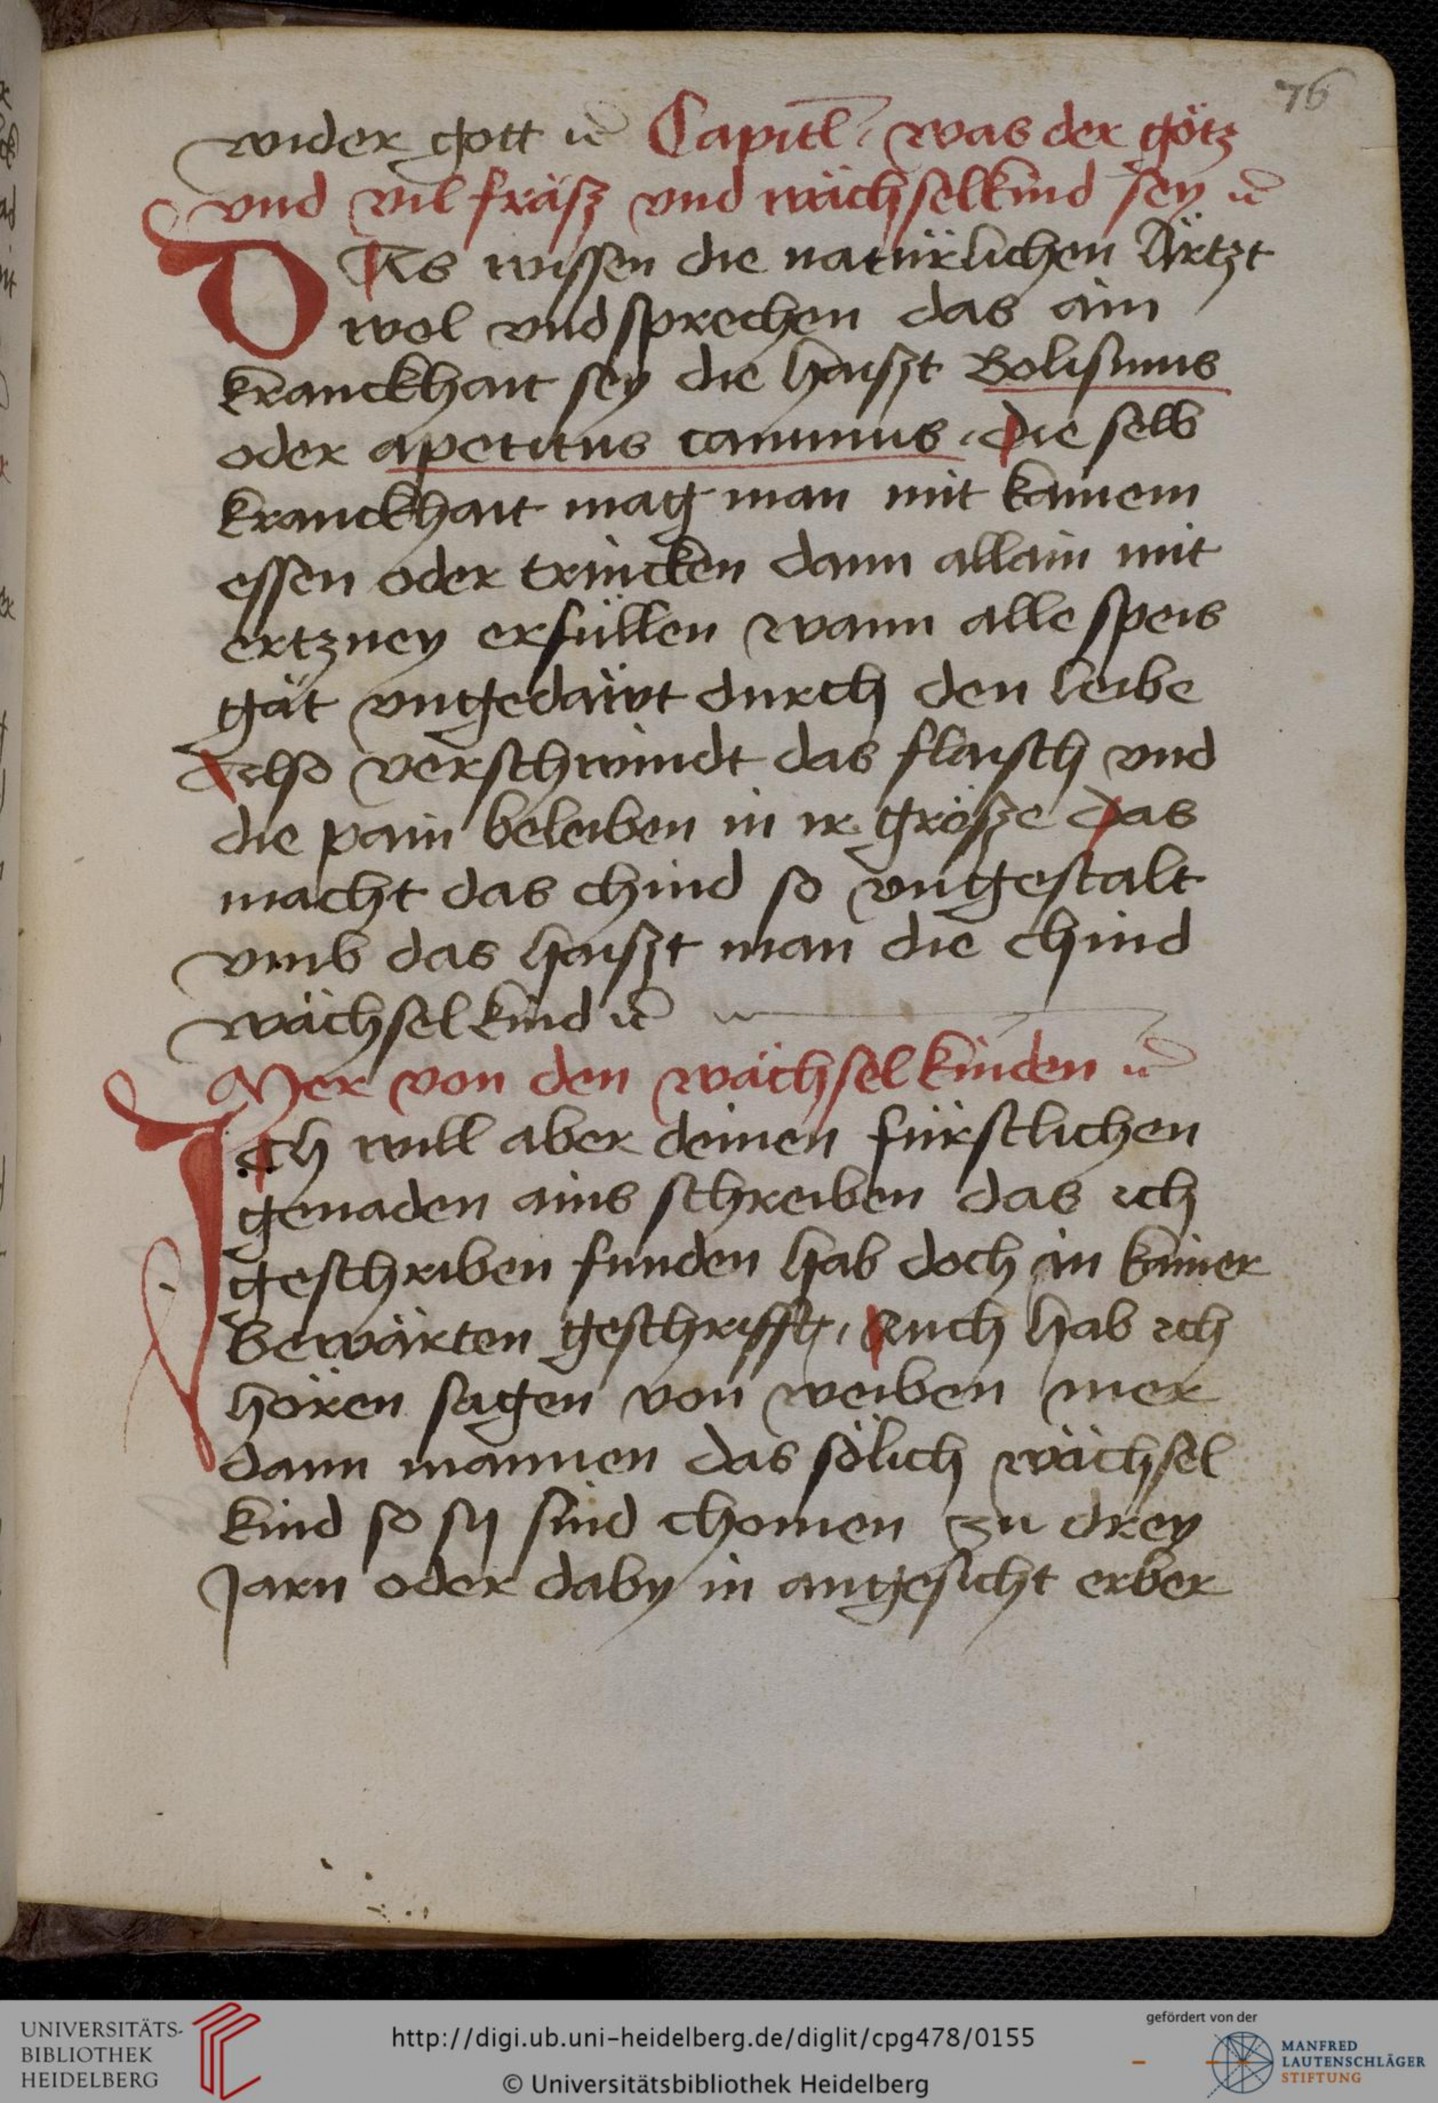 76
wider gott etc̄ Capitl̄. was der götz
vnd vil fräsz vnd wächselkind sey etc̄
DAs wissen die natürlichen Ärtzt
wol vnd sprechen das ain
kranckhait sey die haiszt Bolismus
oder apetitus caninus. die selb
kranckhait mag man mit kainem
essen oder trincken dann allain mit
ertzney erfüllen wann alle speis
gät vngedäwt durch den leibe
Also verschwindt das flaisch vnd
die pain beleiben in ir grösze das
macht das chind so vngestalt
vmb das haiszt man die chind
wächsel kind etc̄
Mer von den wächsel kinden etc̄
Ich will aber deinen fürstlichen
genaden ains schreiben das ich
geschriben funden hab doch in kainer
bewärten geschrifft, Auch hab ich
hören sagen von weiben mer
dann mannen das sölich wächsel
kind so sy sind chomen zu drey
Jarn oder daby in angesicht erber
UNIVERSITÄTS-
BIBLIOTHEK
HEIDELBERG
http://digi.ub.uni-heidelberg.de/diglit/cpg478/0155
© Universitätsbibliothek Heidelberg
gefördert von der
MANFRED
LAUTENSCHLÄGER
STIFTUNG